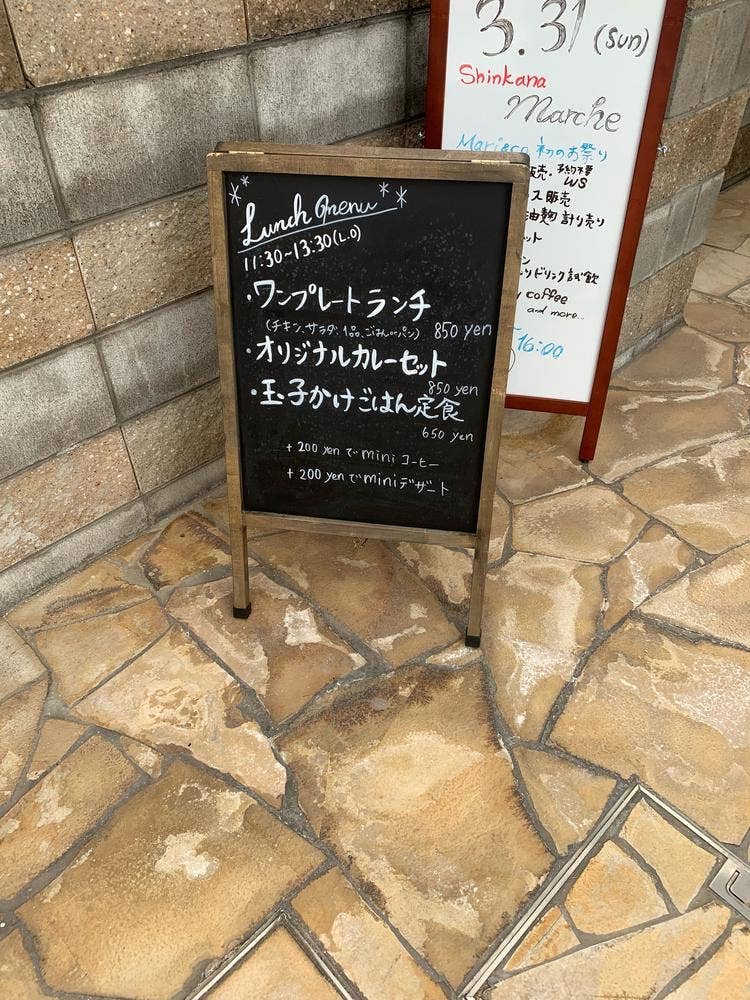 Lunch menu
11:30~13:30(L.O)
・ワンプレートランチ
(チキン、サラダ、1品、ごはんorパン) 850 yen
・オリジナルカレーセット
850 yen
・玉子かけごはん定食
650 yen
+ 200 yen で mini コーヒー
+ 200 yen で mini デザート
3.31 (sun)
Shinkana
Marche
Mari&co 初のお祭り
販売・予約不要
WS
ス販売
油麹 計り売り
ット
ン
ドリンク試飲
coffee
and more...
16:00